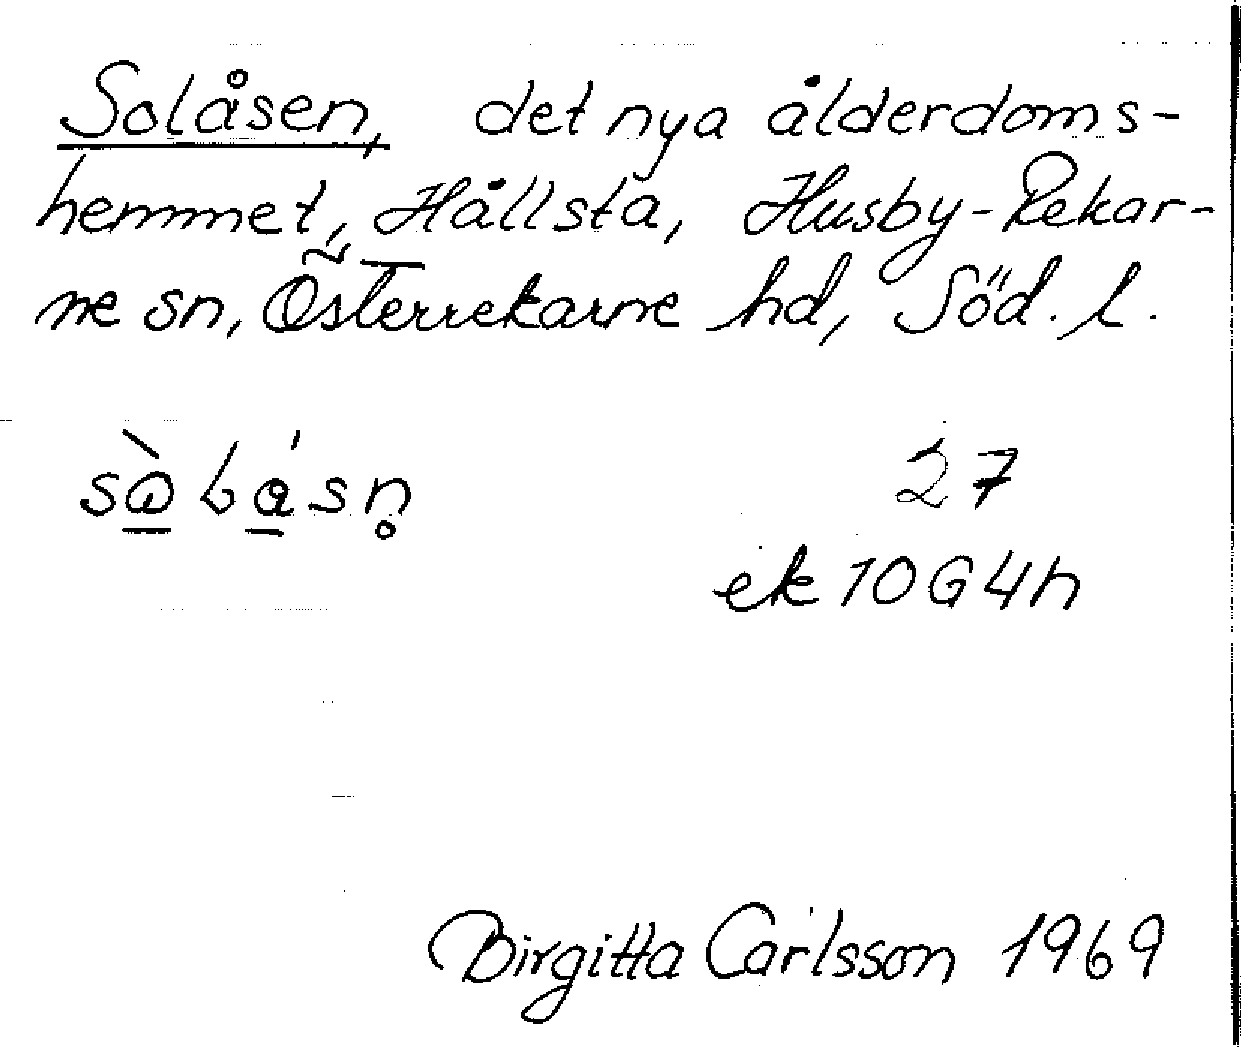 Solåsen, det nya ålderdoms-
hemmet, Hållsta, Husby-Rekar-
ne sn, Österrekarne hd, Söd. l.
27
ek 10G4h
Birgitta Carlsson 1969